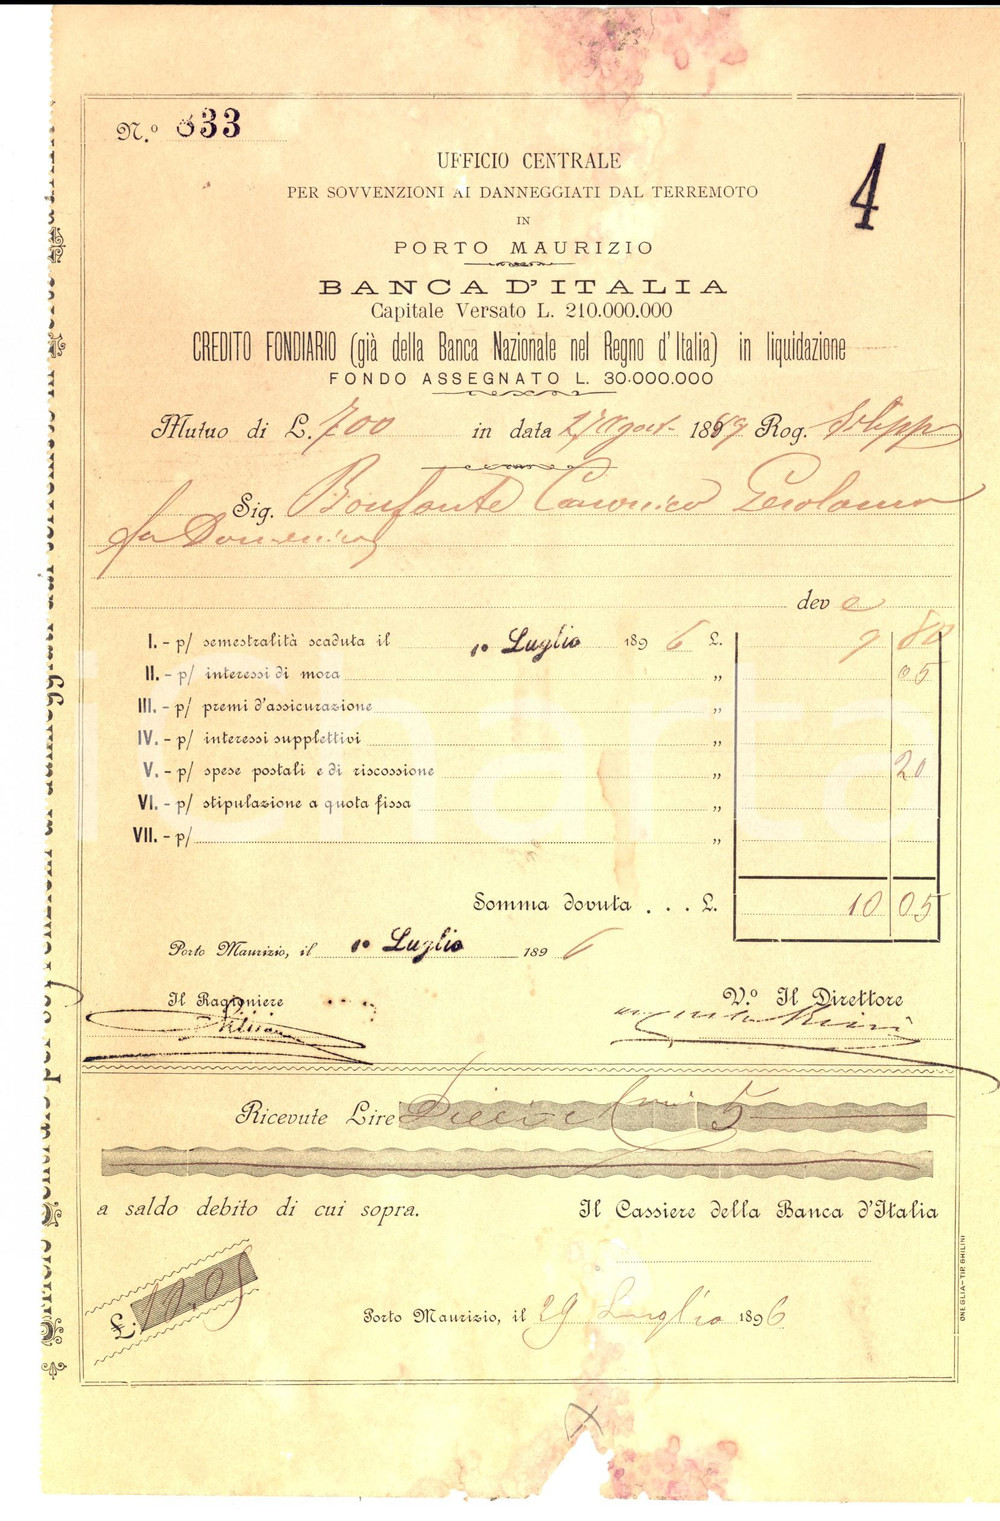 N.º 333
4
UFFICIO CENTRALE
PER SOVVENZIONI AI DANNEGGIATI DAL TERREMOTO
IN
PORTO MAURIZIO
BANCA D'ITALIA
Capitale Versato L. 210.000.000
CREDITO FONDIARIO (già della Banca Nazionale nel Regno d'Italia) in liquidazione
FONDO ASSEGNATO L. 30.000.000
Mutuo di L. 700 in data 27 Agost. 1889 Rog. Filippi
Sig. Bonfante Canonico Gerolamo
fu Domenico
deve
I. - p/ semestralità scaduta il 1º Luglio 1896 £. 9 80
II. - p/ interessi di mora „ 05
III. - p/ premi d'assicurazione „
IV. - p/ interessi supplettivi „
V. - p/ spese postali e di riscossione „ 20
VI. - p/ stipulazione a quota fissa „
VII. - p/ „
Somma dovuta . . . £. 10 05
Porto Maurizio, il 1º Luglio 1896
Il Ragioniere
V.º Il Direttore
Ricevute Lire Dieci e Cmi 5
a saldo debito di cui sopra.
Il Cassiere della Banca d'Italia
£. 10.05
Porto Maurizio, il 29 Luglio 1896
ONEGLIA - TIP. GHILINI